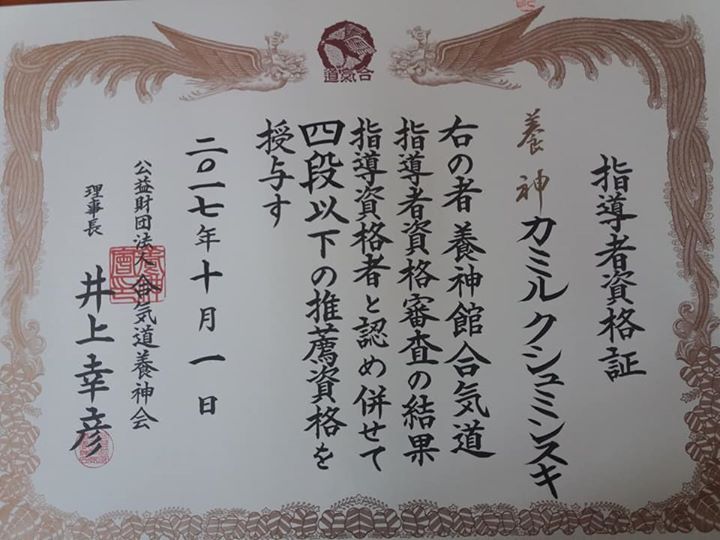 合氣道
指導者資格証
養神
カミルクシュミンスキ
右の者養神館合気道
指導者資格審査の結果
指導資格者と認め併せて
四段以下の推薦資格を
授与す
二〇一七年十月一日
公益財団法人合気道養神会
理事長
井上幸彦